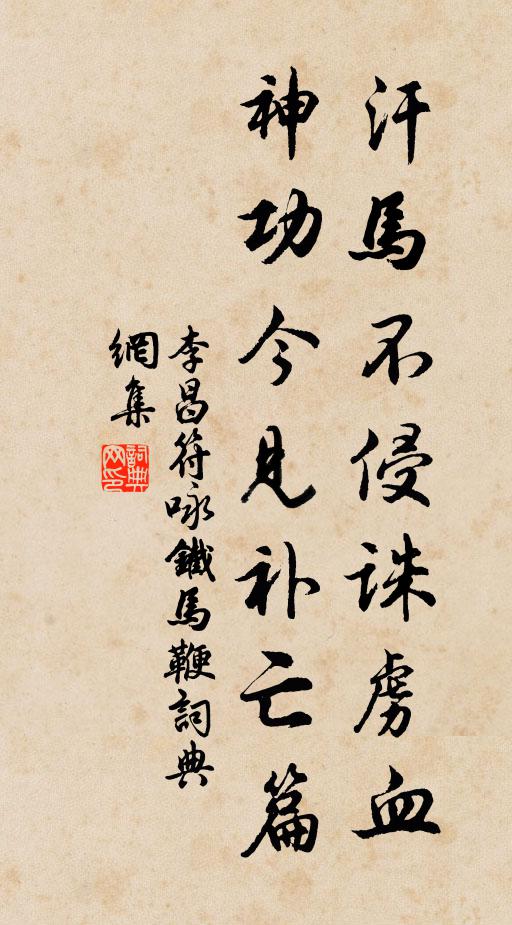 汗馬不侵誅虜血
神功今見补亡篇
李昌符咏鐵馬鞭詞典
網集
詞典
网印